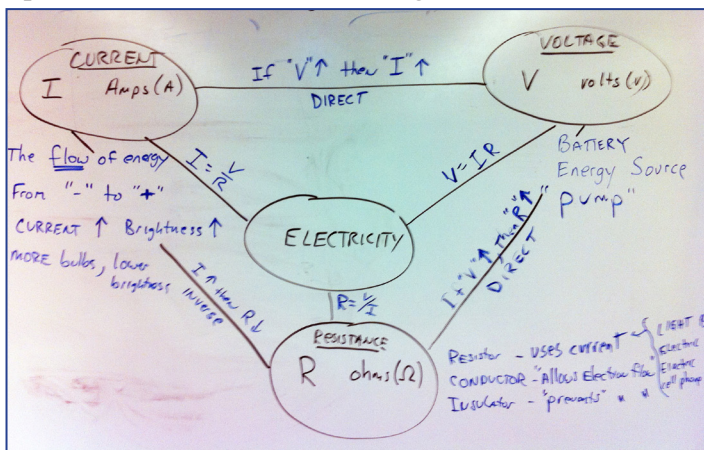 CURRENT
I Amps (A)
If "V"↑ then "I" ↑
DIRECT
VOLTAGE
V volts (v)
The flow of energy
From "-" to "+"
CURRENT ↑ Brightness ↑
MORE bulbs, lower
brightness
I = V/R
V = I R
BATTERY
Energy Source
"pump"
ELECTRICITY
I ↑ then R↓
inverse
R = V/I
If "V"↑, then "R"↑
DIRECT
RESISTANCE
R ohms (Ω)
Resistor - uses current
CONDUCTOR - "Allows Electron flow"
Insulator - "prevents" " "
LIGHT
Electric
Electric
cell phone